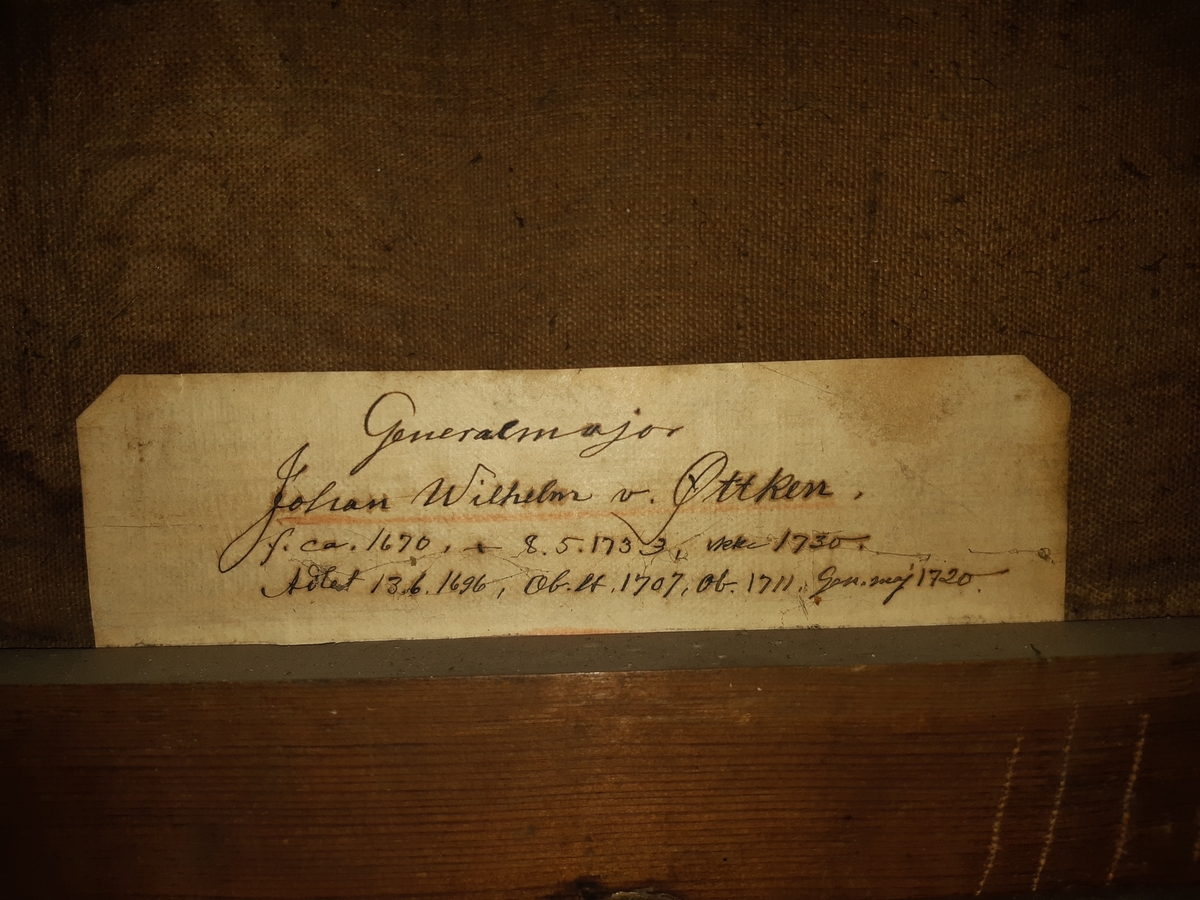 Generalmajor
Johan Wilhelm v. Øttken.
f. ca. 1670, + 8.5.1733, ikke 1730.
Adlet 13.6.1696, Ob.lt. 1707, Ob. 1711. Gen.maj 1720.